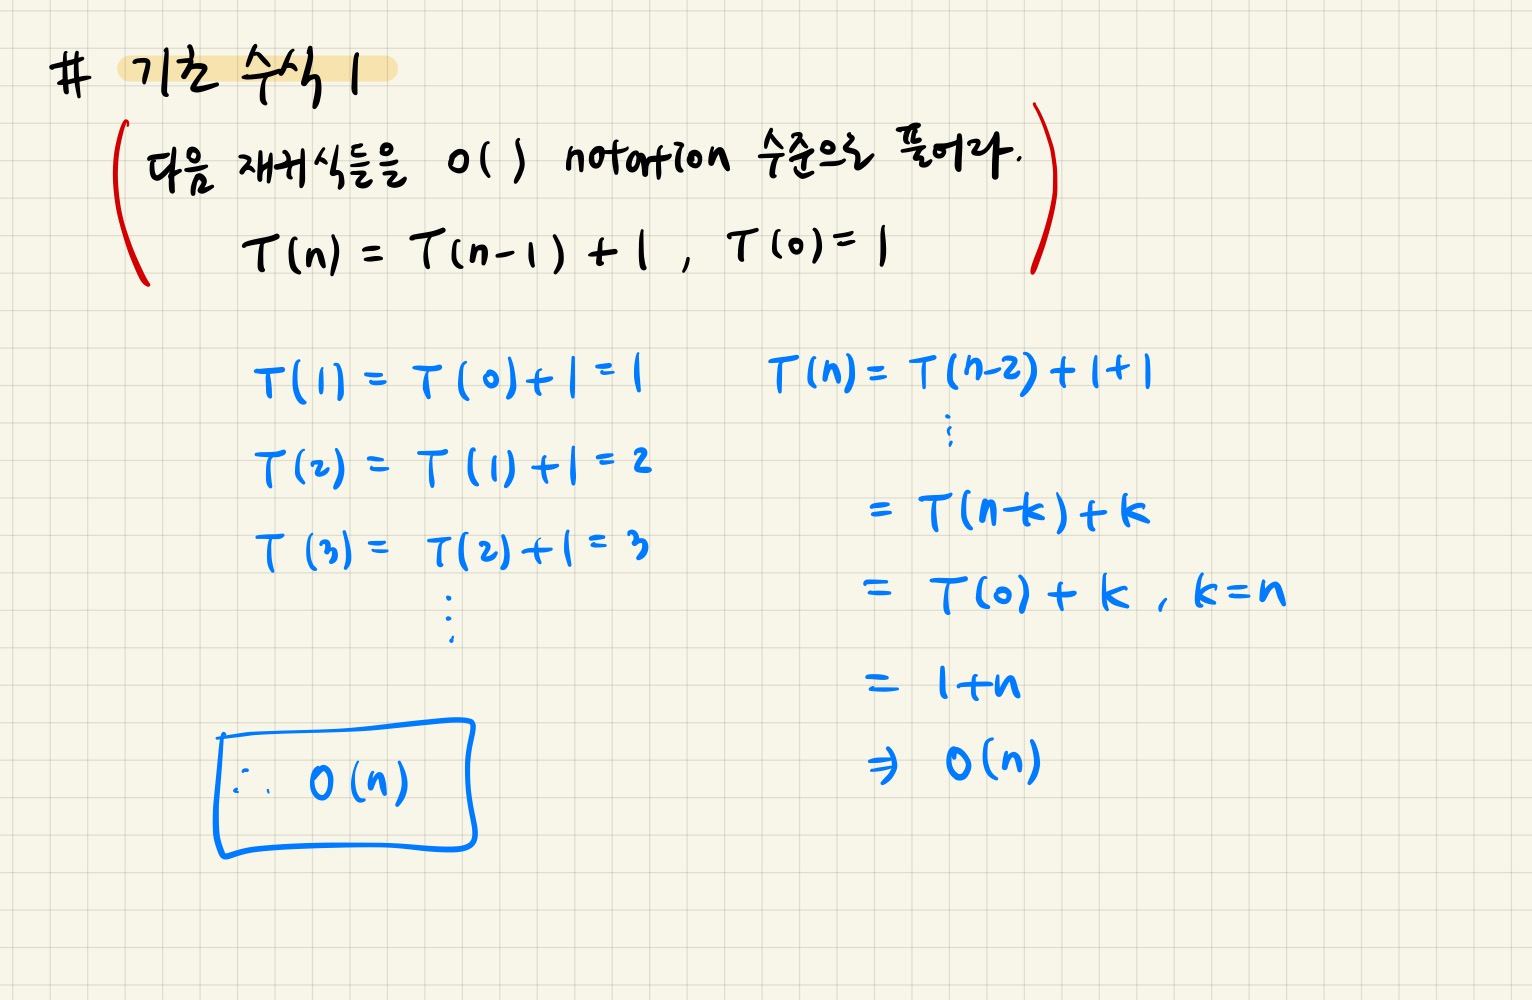 # 기초 수식 1
다음 재귀식들을 O( ) notation 수준으로 풀어라.
T(n) = T(n-1) + 1 , T(0) = 1
T(1) = T(0) + 1 = 1
T(2) = T(1) + 1 = 2
T(3) = T(2) + 1 = 3
⋮
∴ O(n)
T(n) = T(n-2) + 1 + 1
⋮
= T(n-k) + k
= T(0) + k , k = n
= 1 + n
⇒ O(n)